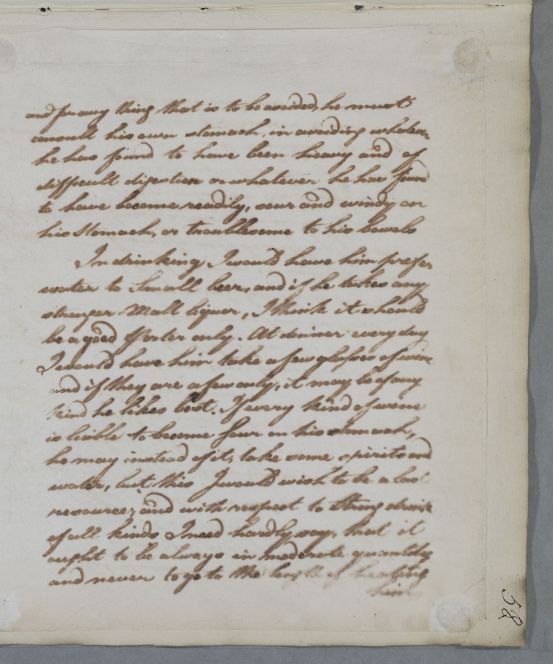 and for any thing that is to be avoided, he must
consult his own stomach, in avoiding whatever
he has found to have been heavy and of
difficult digestion or whatever he has found
to have become readily, sour and windy on
his Stomach, or troublesome to his bowels
In drinking, I would have him prefer
water to Small beer, and if he takes any
stronger Malt liquor, I think it should
be a good Porter only. At dinner every day
I would have him take a few glasses of wine
and if they are a few only, it may be of any
kind he likes best. If every kind of wine
is liable to become sour on his stomach,
he may instead of it, take some spirits and
water, but this I would wish to be a last
resource; and with respect to Strong drink
of all kinds I need hardly say, that it
ought to be always in moderate quantity
and never to go to the length of heating
him
58